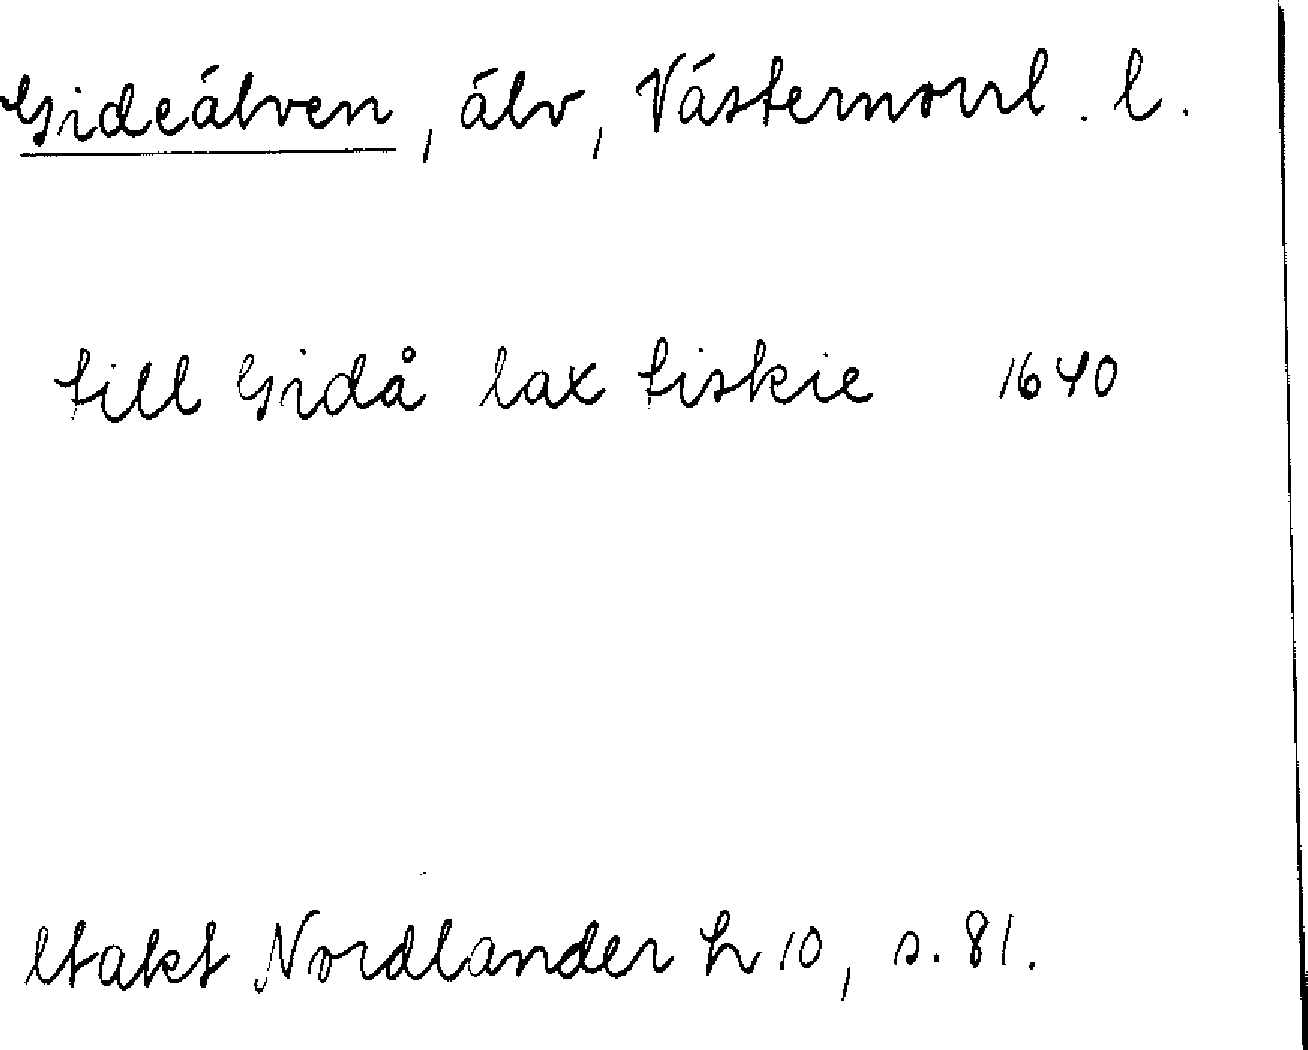 Gideälven, älv, Västernorrl. l.
till Gidå lax fiskie 1640
Nordlander h 10, s. 81.